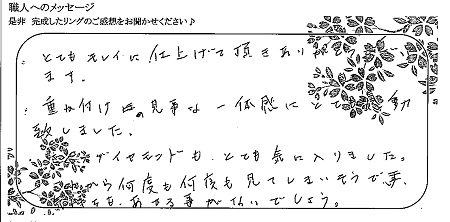 職人へのメッセージ
是非 完成したリングのご感想をお聞かせください♪
とてもキレイに仕上げて頂きあり
ます。
重ね付けの見事な一体感にとて 動
致しました。
ダイヤモンドも、とても気に入りました。
から何度も何度も見てしまいそうで事、
も、あきる事がないでしょう。